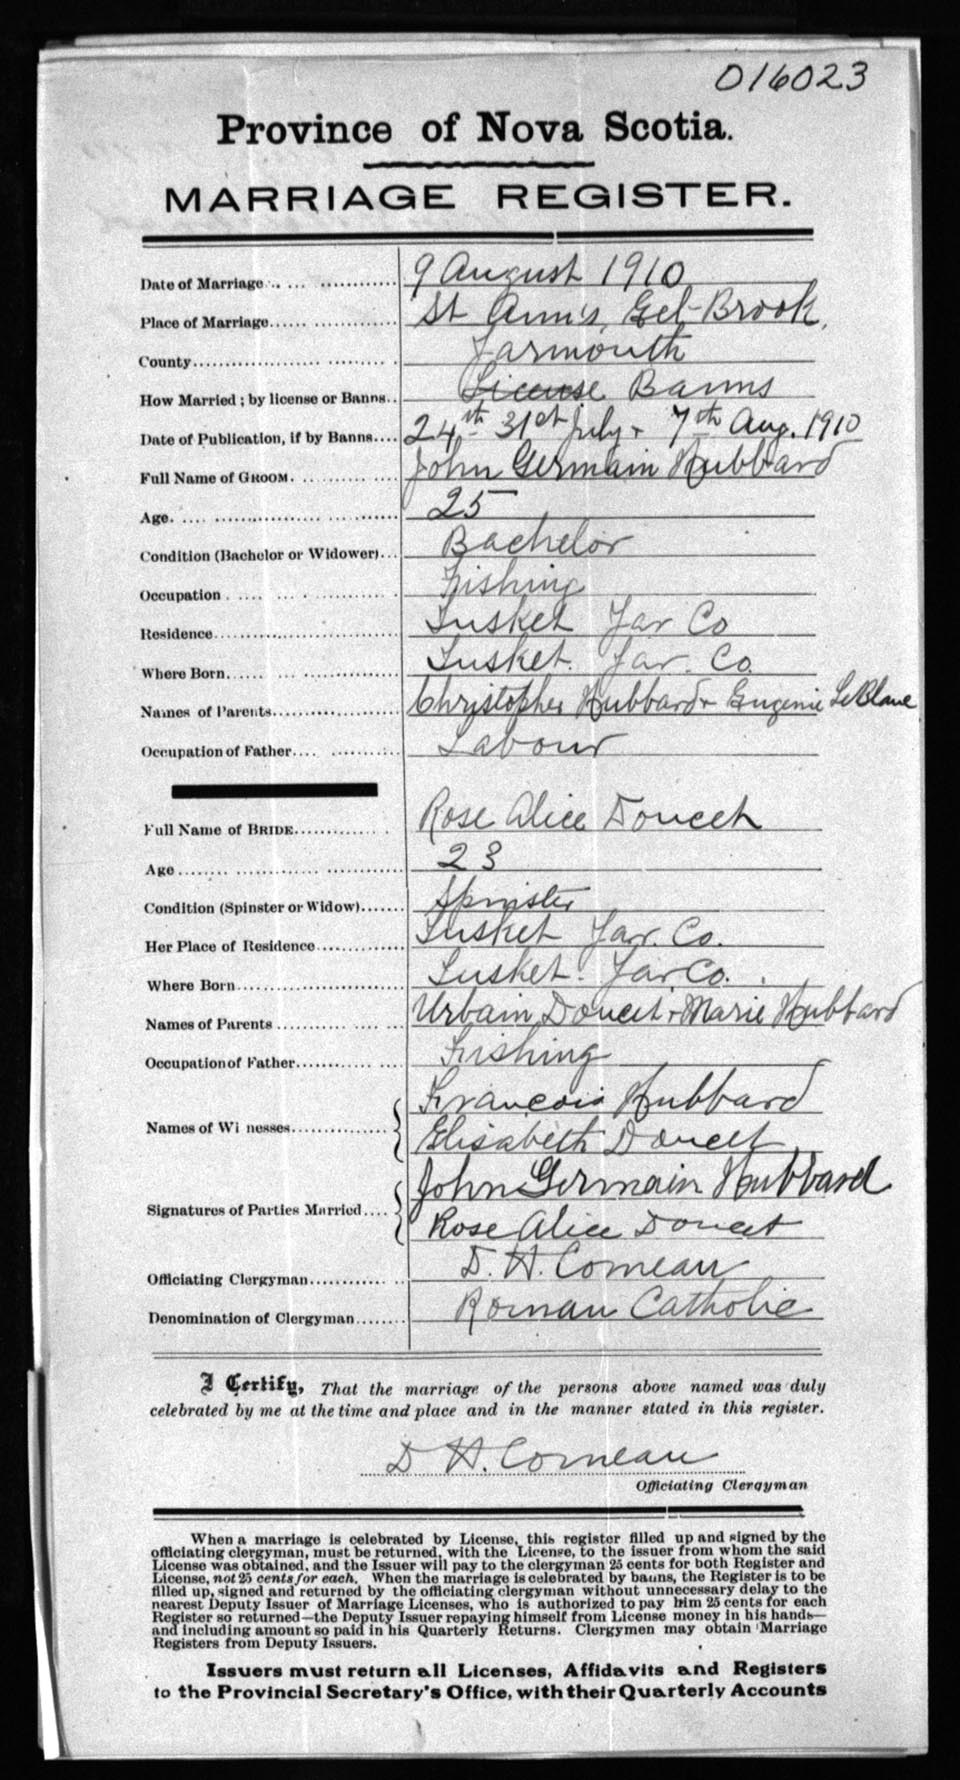 016023
Province of Nova Scotia.
MARRIAGE REGISTER.
Date of Marriage 9 August 1910
Place of Marriage St Ann's, Eel-Brook,
County Yarmouth
How Married; by license or Banns License Banns
Date of Publication, if by Banns 24th 31st July + 7th Aug. 1910
Full Name of GROOM John Germain Hubbard
Age 25
Condition (Bachelor or Widower) Bachelor
Occupation Fishing
Residence Tusket Yar Co
Where Born Tusket. Yar. Co.
Names of Parents Christopher Hubbard + Eugenie LeBlanc
Occupation of Father Labour
Full Name of BRIDE Rose Alice Doucet
Age 23
Condition (Spinster or Widow) Spinster
Her Place of Residence Tusket Yar. Co.
Where Born Tusket. Yar Co.
Names of Parents Urbain Doucet + Marie Hubbard
Occupation of Father Fishing
Names of Wi nesses François Hubbard
Elisabeth Doucet
Signatures of Parties Married John Germain Hubbard
Rose Alice Doucet
Officiating Clergyman D. H. Comeau
Denomination of Clergyman Roman Catholic
I Certify, That the marriage of the persons above named was duly
celebrated by me at the time and place and in the manner stated in this register.
D H. Comeau
Officiating Clergyman
When a marriage is celebrated by License, this register filled up and signed by the
officiating clergyman, must be returned, with the License, to the issuer from whom the said
License was obtained, and the Issuer will pay to the clergyman 25 cents for both Register and
License, not 25 cents for each. When the marriage is celebrated by banns, the Register is to be
filled up, signed and returned by the officiating clergyman without unnecessary delay to the
nearest Deputy Issuer of Marriage Licenses, who is authorized to pay him 25 cents for each
Register so returned—the Deputy Issuer repaying himself from License money in his hands—
and including amount so paid in his Quarterly Returns. Clergymen may obtain Marriage
Registers from Deputy Issuers.
Issuers must return all Licenses, Affidavits and Registers
to the Provincial Secretary's Office, with their Quarterly Accounts